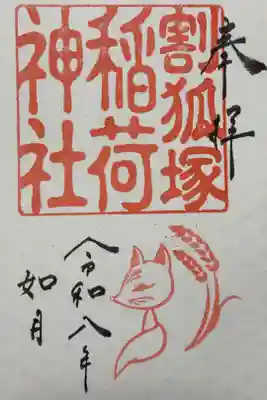 奉拝
割狐塚
稲荷
神社
令和八年
如月